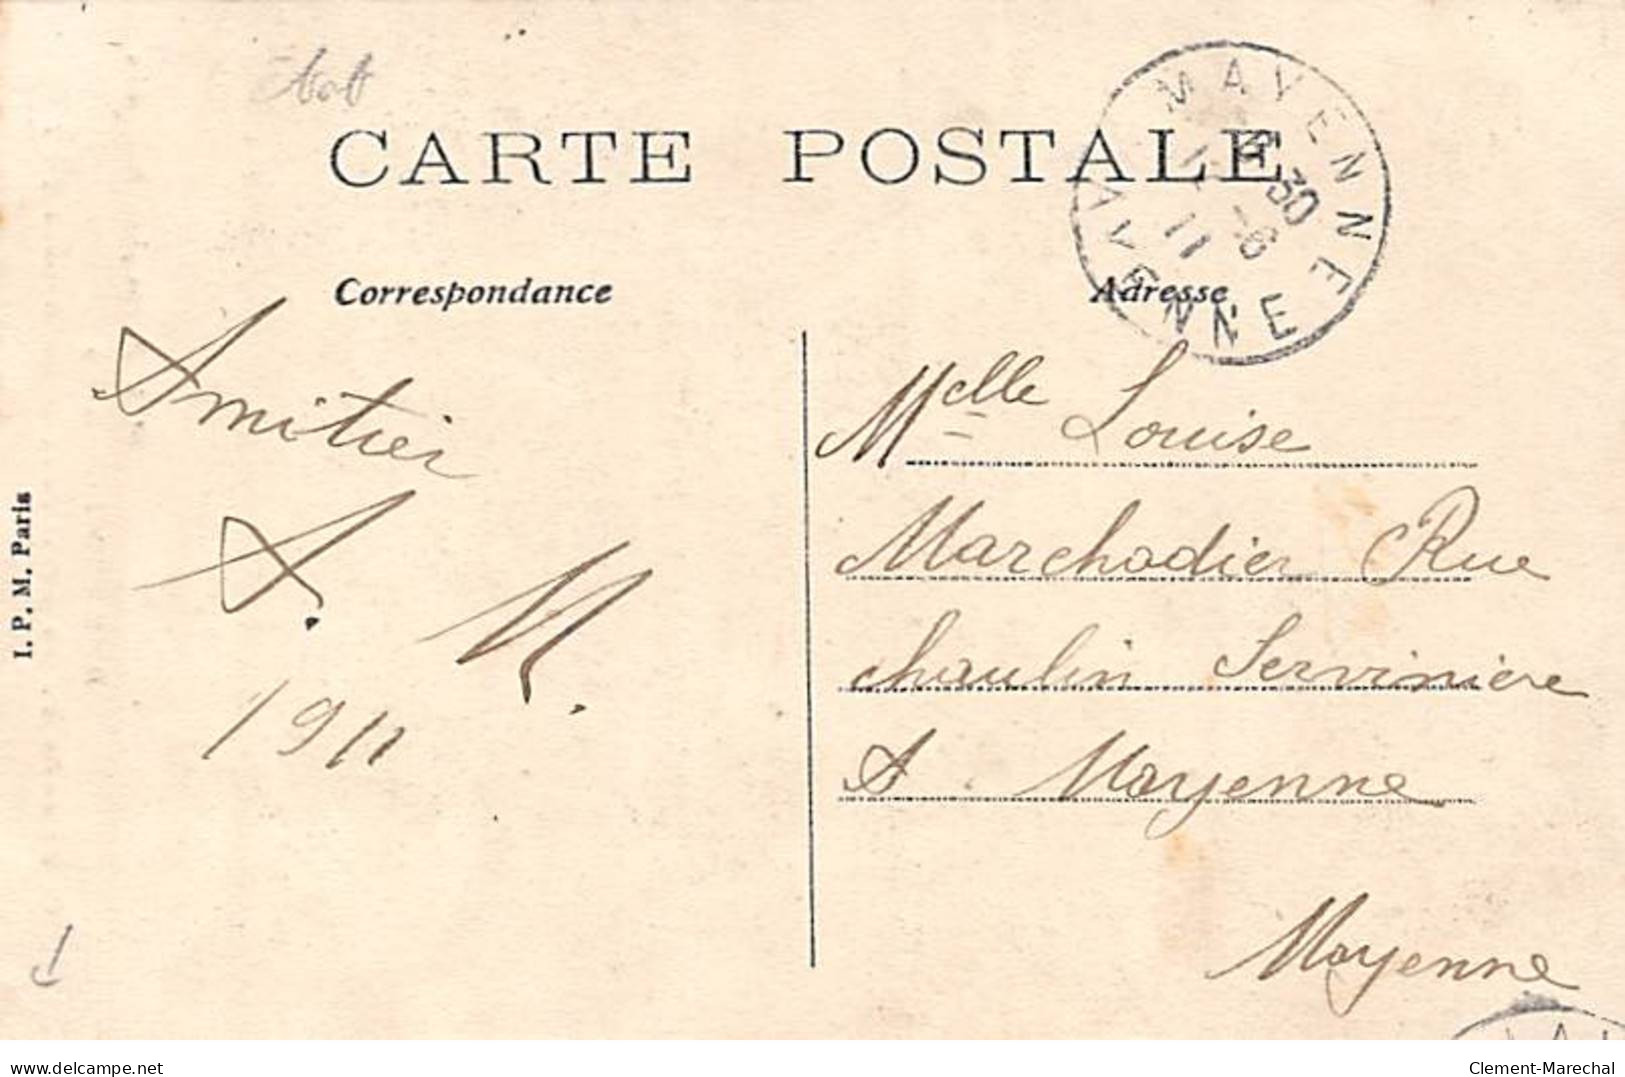 CARTE POSTALE
MAYENNE
30
-6
11
MAYENNE
Correspondance
Adresse
Amitiei
A. M.
1911
Melle Louise
Marchadier Rue
chaulin Servinière
A. Mayenne
Mayenne
I. P. M. Paris
delcampe.net
Clement-Marechal